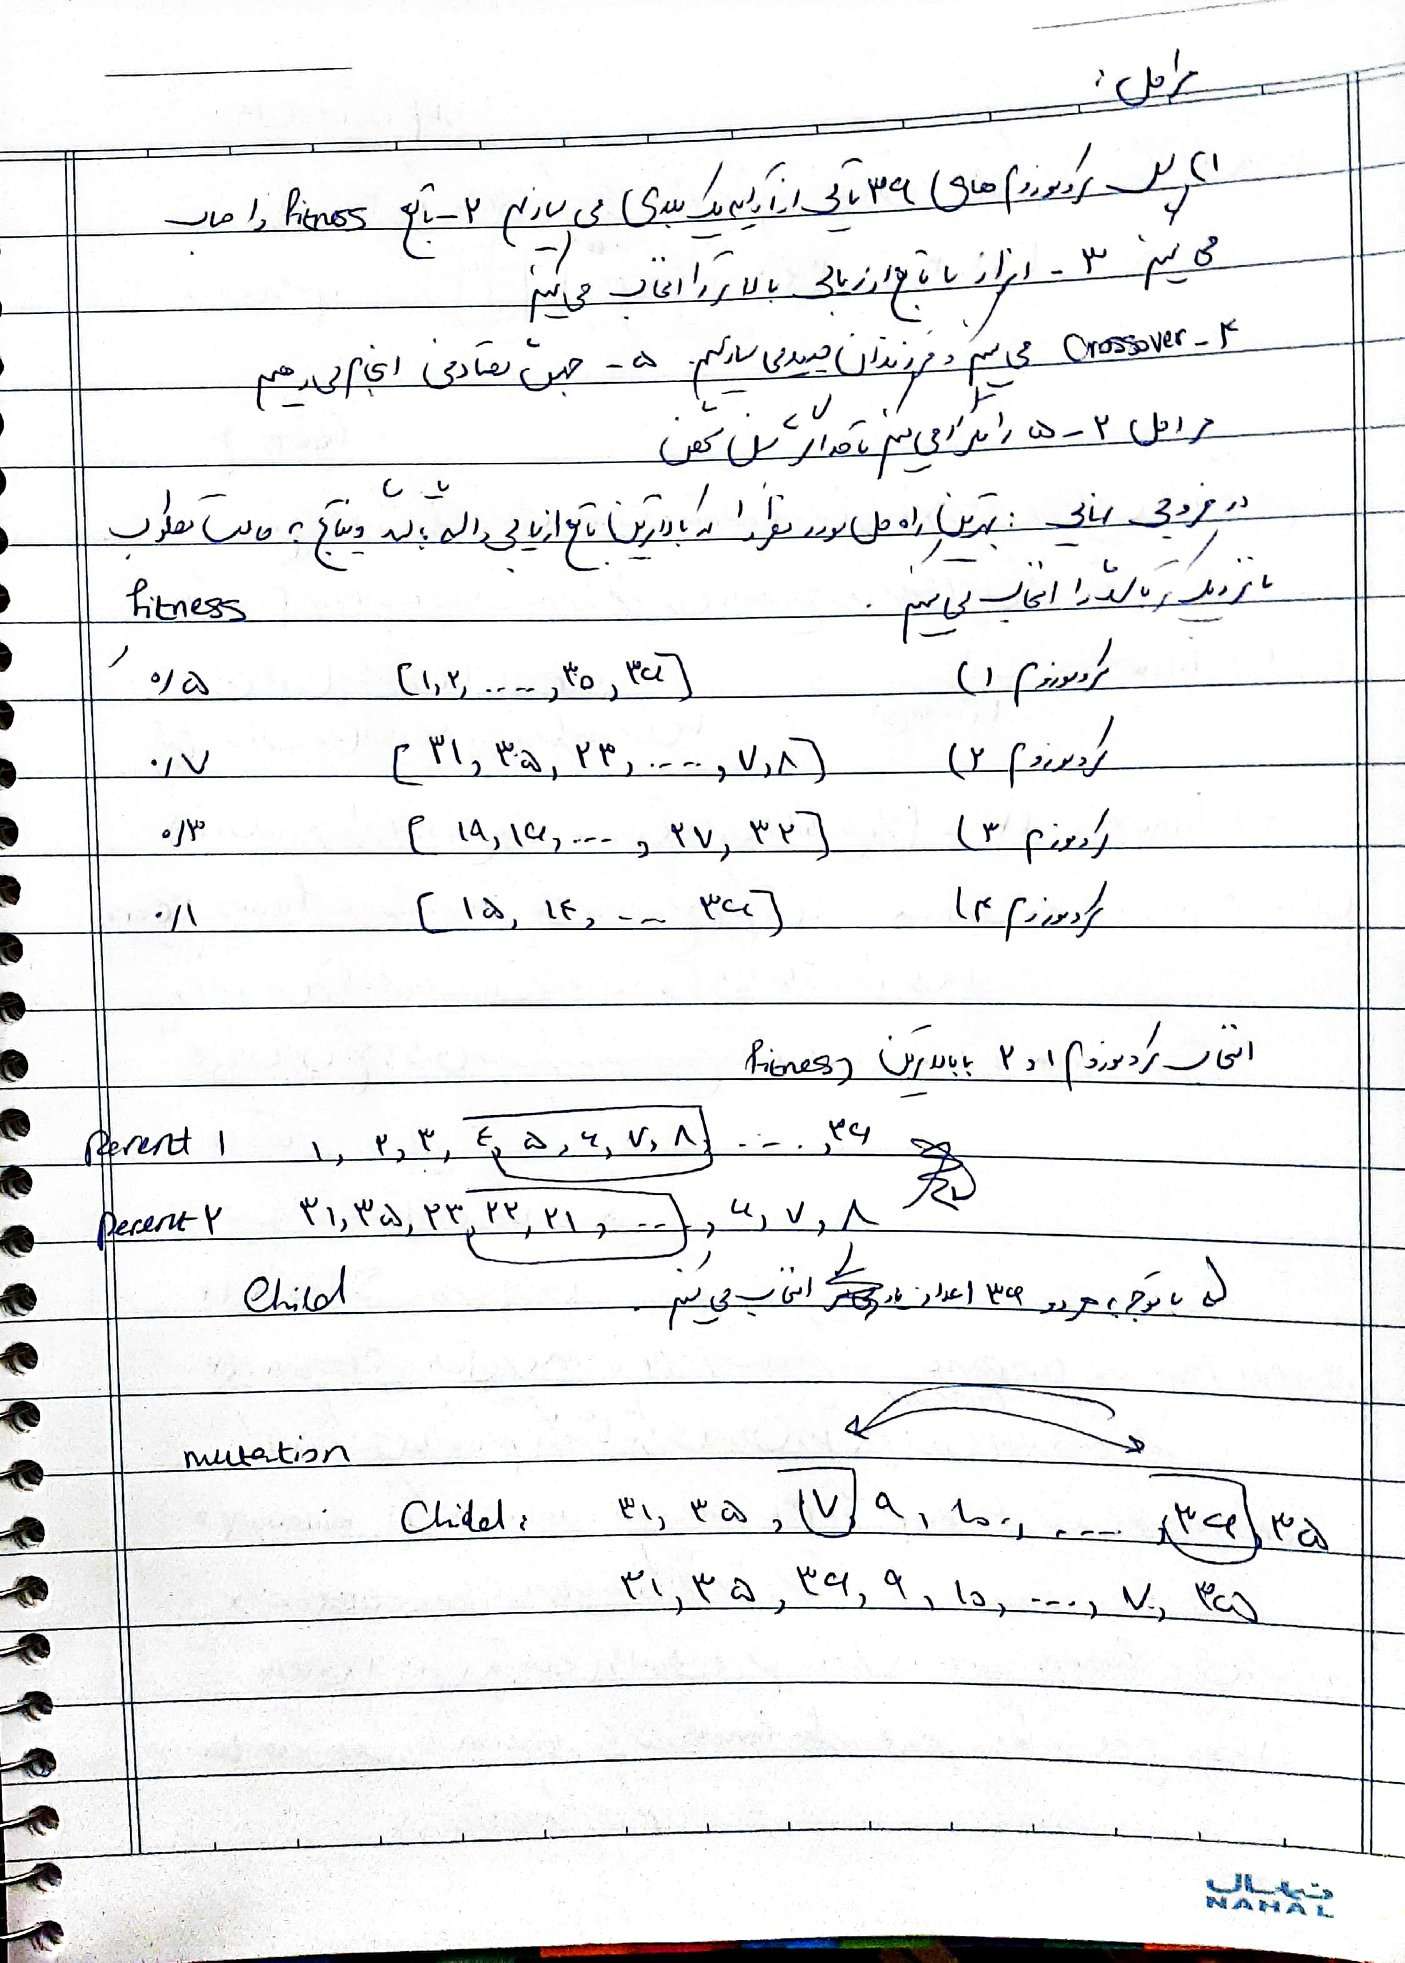 مراحل :
۱) کروموزوم های ۳۶ تایی از آرایه یک بعدی می سازیم ۲- تابع fitness را حساب
می کنیم ۳- افراد با تابع ارزیابی بالاتر را انتخاب می کنیم
۴- Crossover می کنیم و فرزندان جدید می سازیم. ۵- جهش تصادفی انجام می دهیم
مراحل ۲-۵ را تکرار می کنیم تا حداکثر نسل
در خروجی نهایی : بهترین راه حل مورد نظر را که بالاترین تابع ارزیابی داشته باشد و نتایج به حالت مطلوب
ما نزدیک تر باشد را انتخاب می کنیم .
fitness
کروموزوم ۱) [۱,۲, ...., ۳۵, ۳۶] ۰/۵
کروموزوم ۲) [۳۱, ۳۵, ۲۳, ...., ۷, ۸] ۰/۷
کروموزوم ۳) [۱۸, ۱۶, ... , ۲۷, ۳۲] ۰/۳
کروموزوم ۴) [۱۵, ۱۴, ... ۳۶] ۰/۱
انتخاب کروموزوم ۱ و ۲ با بالاترین fitness
Perent ۱ ۱, ۲, ۳, ٤, ۵, ۶, ۷, ۸, ...., ۳۶
perent ۲ ۳۱, ۳۵, ۲۳, ۲۲, ۲۱, ..., ۶, ۷, ۸
Child با توجه به هر دو ۳۶ اعداد انتخاب می کنیم .
mutation
Chidel: ۳۱, ۳۵, ۷, ۹, ۱۰, ...., ۳۶, ۳۵
۳۱, ۳۵, ۳۶, ۹, ۱۰, ...., ۷, ۳۵
نهال
NAHAL